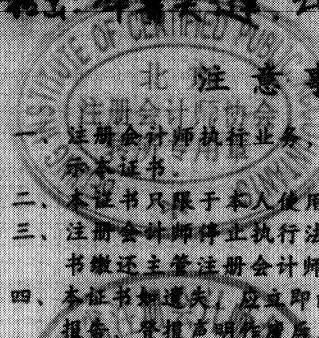 INSTITUTE OF CERTIFIED PUBLIC
北
注册会计师协会
注意事
一、注册会计师执行业务,
示本证书.
二、本证书只限于本人使用
三、注册会计师停止执行法
书缴还主管注册会计师
四、本证书如遗失,应立即
报告,登报声明作废后